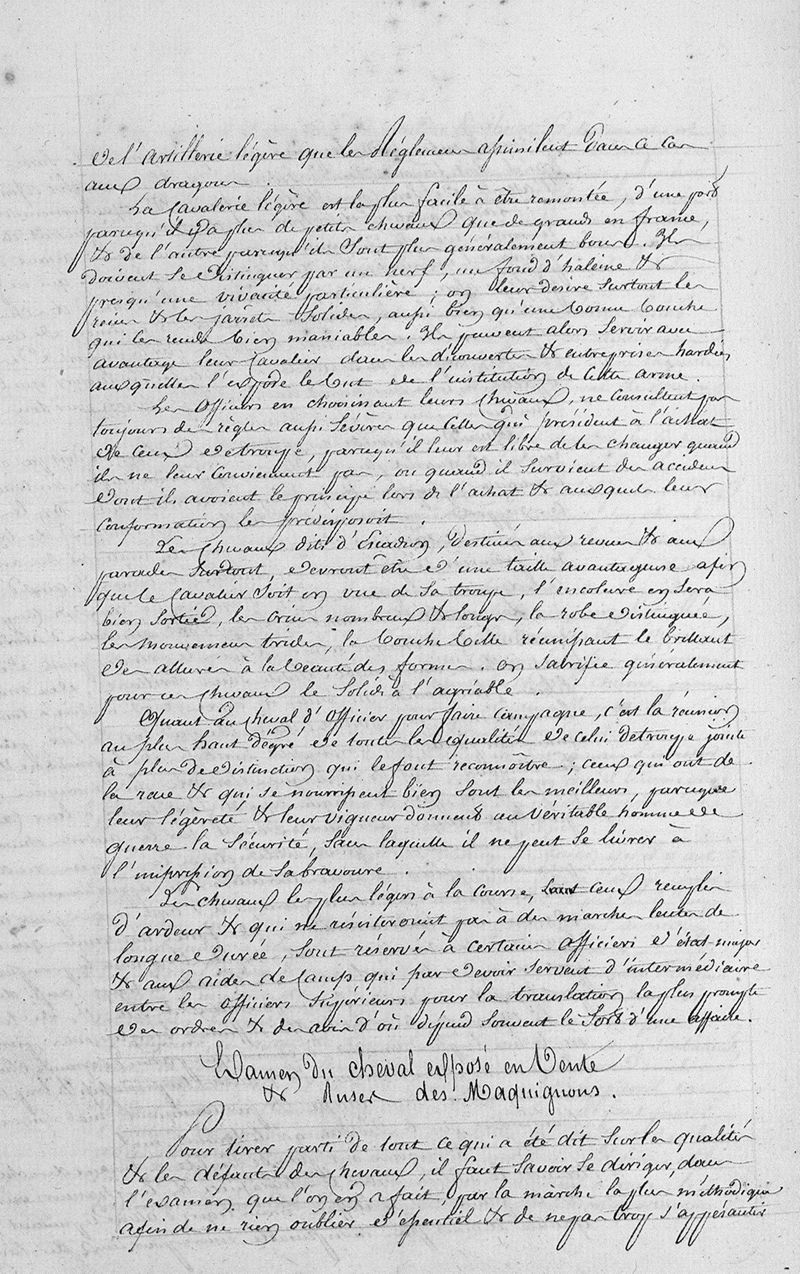 de l'artillerie légère que les Réglemens assimilent dans ce cas
aux dragons.
La Cavalerie légère est la plus facile à être remontée, d'une part
parcequ'il y a plus de petits chevaux que de grands en france,
& de l'autre parcequ'ils sont plus généralement bons. Ils
doivent se distinguer par un nerf, un fond d'haleine &
presqu'une vivacité particulière ; on leur desire surtout les
reins & les jarrets solides, aussi bien qu'une bonne bouche
qui les rende bien maniables. Ils peuvent alors servir avec
avantage leur Cavalier dans les découvertes & entreprises hardies
auxquelles l'expose le but de l'institution de cette arme.
Les Officiers en choisissant leurs chevaux, ne consultent pas
toujours des règles aussi sévères que celles qui président à l'achat
de ceux de troupe, parcequ'il leur est libre de les changer quand
ils ne leur conviennent pas, ou quand il survient des accidens
dont ils avoient le principe lors de l'achat & auxquels leur
conformation les prédisposoit.
Les chevaux dits d'Escadron, destinés aux revues & aux
parades surtout, devront être d'une taille avantageuse afin
que le Cavalier soit en vue de sa troupe, l'encolure en sera
bien sortie, les crins nombreux & longs, la robe distinguée,
les mouvemens trides, la bouche belle réunissant le brillant
des allures à la beauté des formes. on sacrifie généralement
pour ces chevaux le solide à l'agréable.
Quant au cheval d'officier pour faire campagne, c'est la réunion
au plus haut dégré de toutes les qualités de celui de troupe jointe
à plus de distinction qui le font réconnoître ; ceux qui ont de
la race & qui se nourrissent bien sont les meilleurs, parceque
leur légèreté & leur vigueur donnent au véritable homme de
guerre la sécurité, sans laquelle il ne peut se livrer à
l'impression de sa bravoure.
Les chevaux les plus légers à la course, sont ceux remplis
d'ardeur & qui ne résisteroient pas à des marches lentes de
longue durée, sont reservés à certains officiers d'état-major
& aux aides de Camp qui par devoir servent d'intermédiaire
entre les officiers supérieurs pour la translation la plus prompte
des ordres & des avis d'où dépend souvent le sort d'une affaire.
Examen du cheval exposé en Vente
& Ruses des Maquignons.
Pour tirer parti de tout ce qui a été dit sur les qualités
& les défauts des chevaux, il faut savoir se diriger, dans
l'examen que l'on en fait, par la marche la plus méthodique
afin de ne rien oublier d'essentiel & de ne pas trop s'appésantir